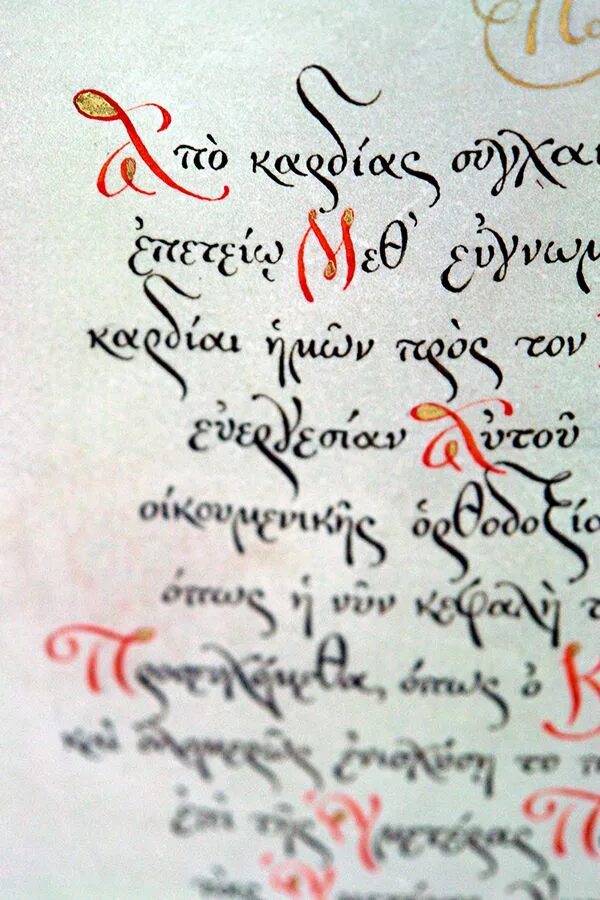 Ἀπὸ καρδίας συγχαι
ἐπετείῳ Μεθ' εὐγνωμ
καρδίαι ἡμῶν πρὸς τον
εὐεργεσίαν Αὐτοῦ
οἰκουμενικῆς ὀρθοδοξίο
ὅπως ἡ νῦν κεφαλὴ τ
Προσευχόμεθα, ὅπως ὁ Κ
ἐπιλύση το π
ἐπὶ τῆς Ὑμετέρας Π